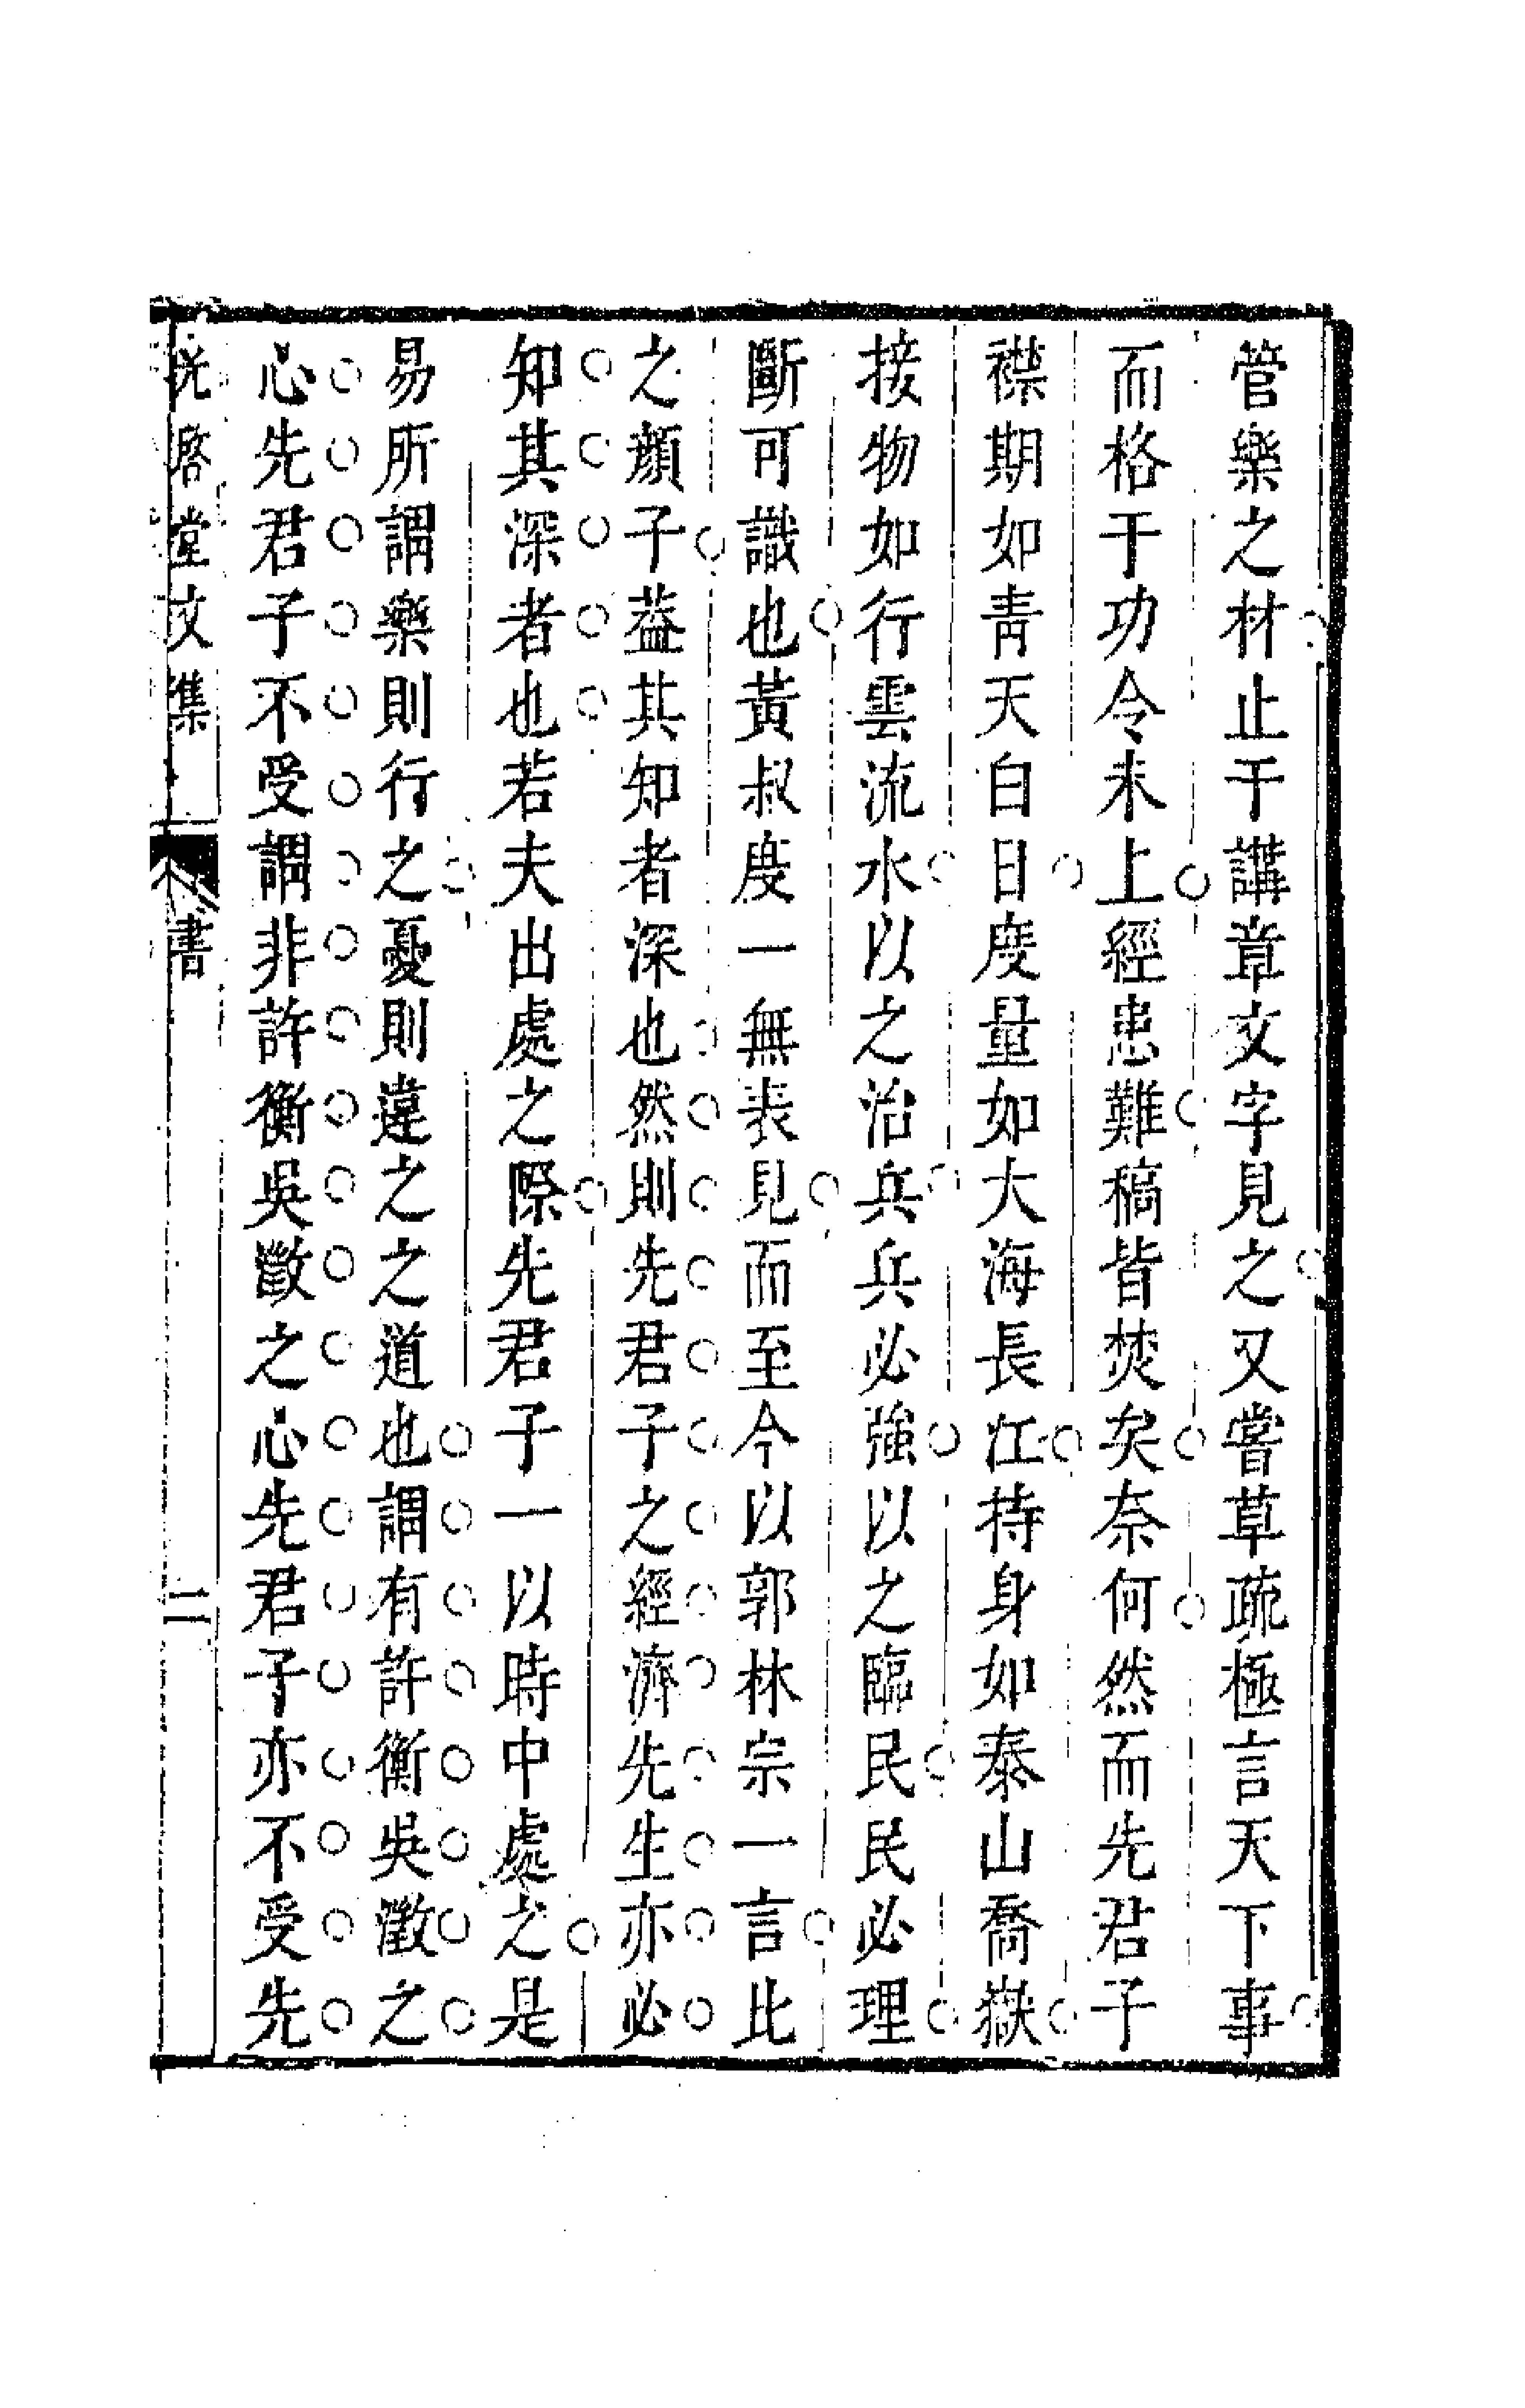 管樂之材止于講章文字見之又嘗草疏極言天下事
而格于功令未上經患難稿皆焚矣奈何然而先君子
襟期如靑天白日度量如大海長江持身如泰山喬嶽
接物如行雲流水以之治兵兵必強以之臨民民必理
斷可識也黃叔度一無表見而至今以郭林宗一言比
之顏子葢其知者深也然則先君子之經濟先生亦必
知其深者也若夫出處之際先君子一以時中處之是
易所謂樂則行之憂則違之之道也謂有許衡吳澂之
心先君子不受謂非許衡吳澂之心先君子亦不受先
堂文集 書 二